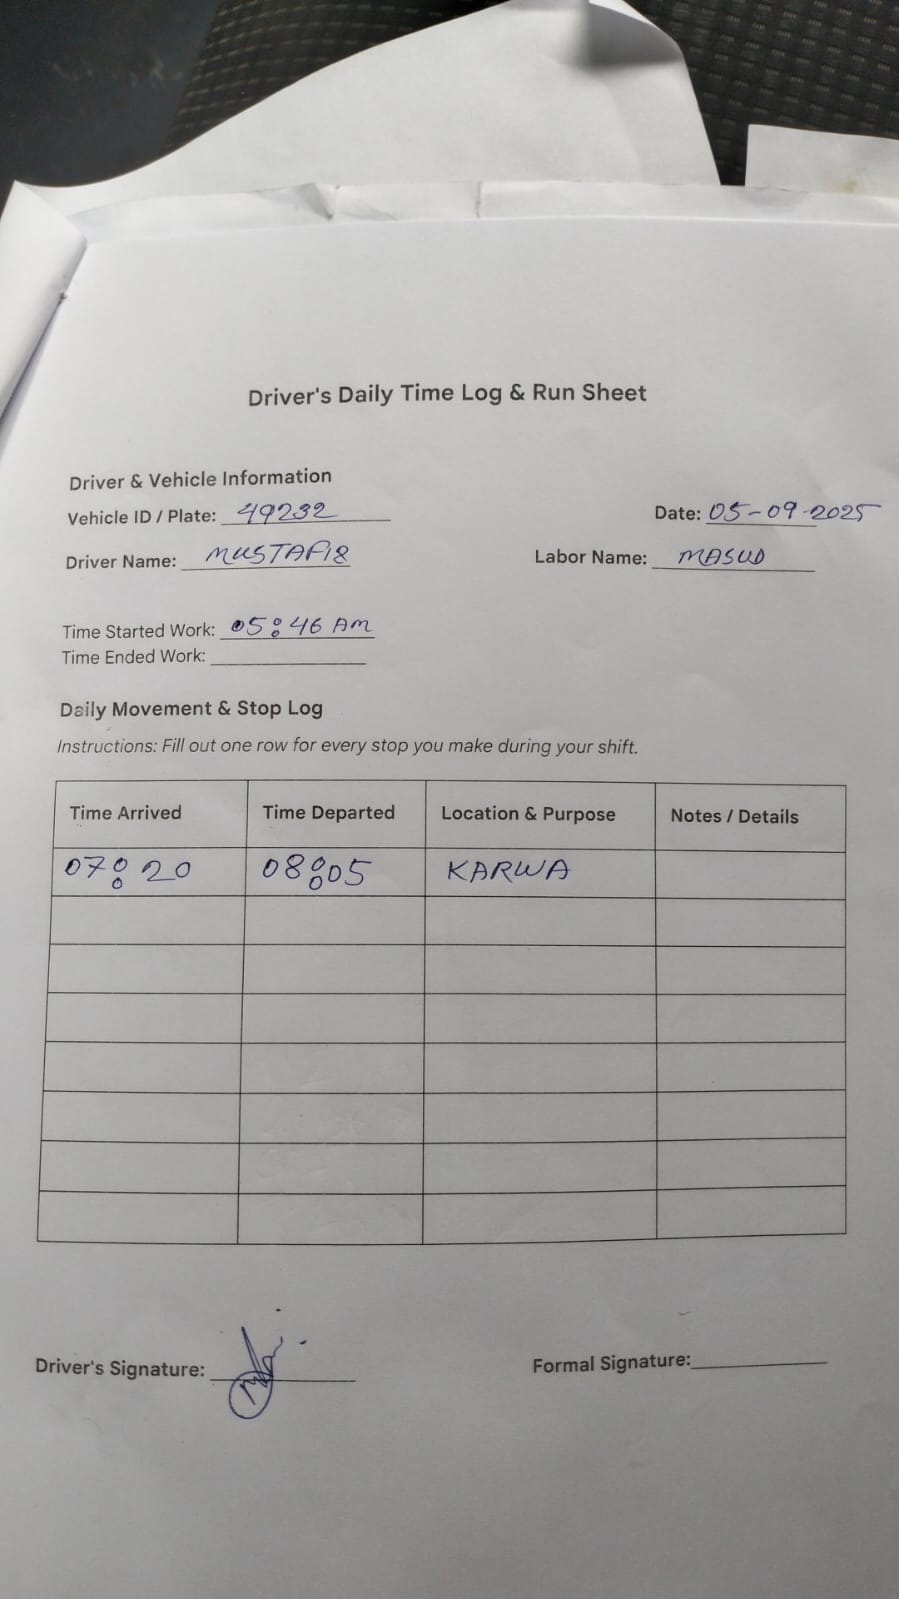 Driver's Daily Time Log & Run Sheet
Driver & Vehicle Information
Vehicle ID / Plate: 49232 Date: 05-09-2025
Driver Name: MUSTAFI8 Labor Name: MASUD
Time Started Work: 05:46 AM
Time Ended Work:
Daily Movement & Stop Log
Instructions: Fill out one row for every stop you make during your shift.
Time Arrived Time Departed Location & Purpose Notes / Details
07:20 08:05 KARWA
Driver's Signature: Formal Signature: